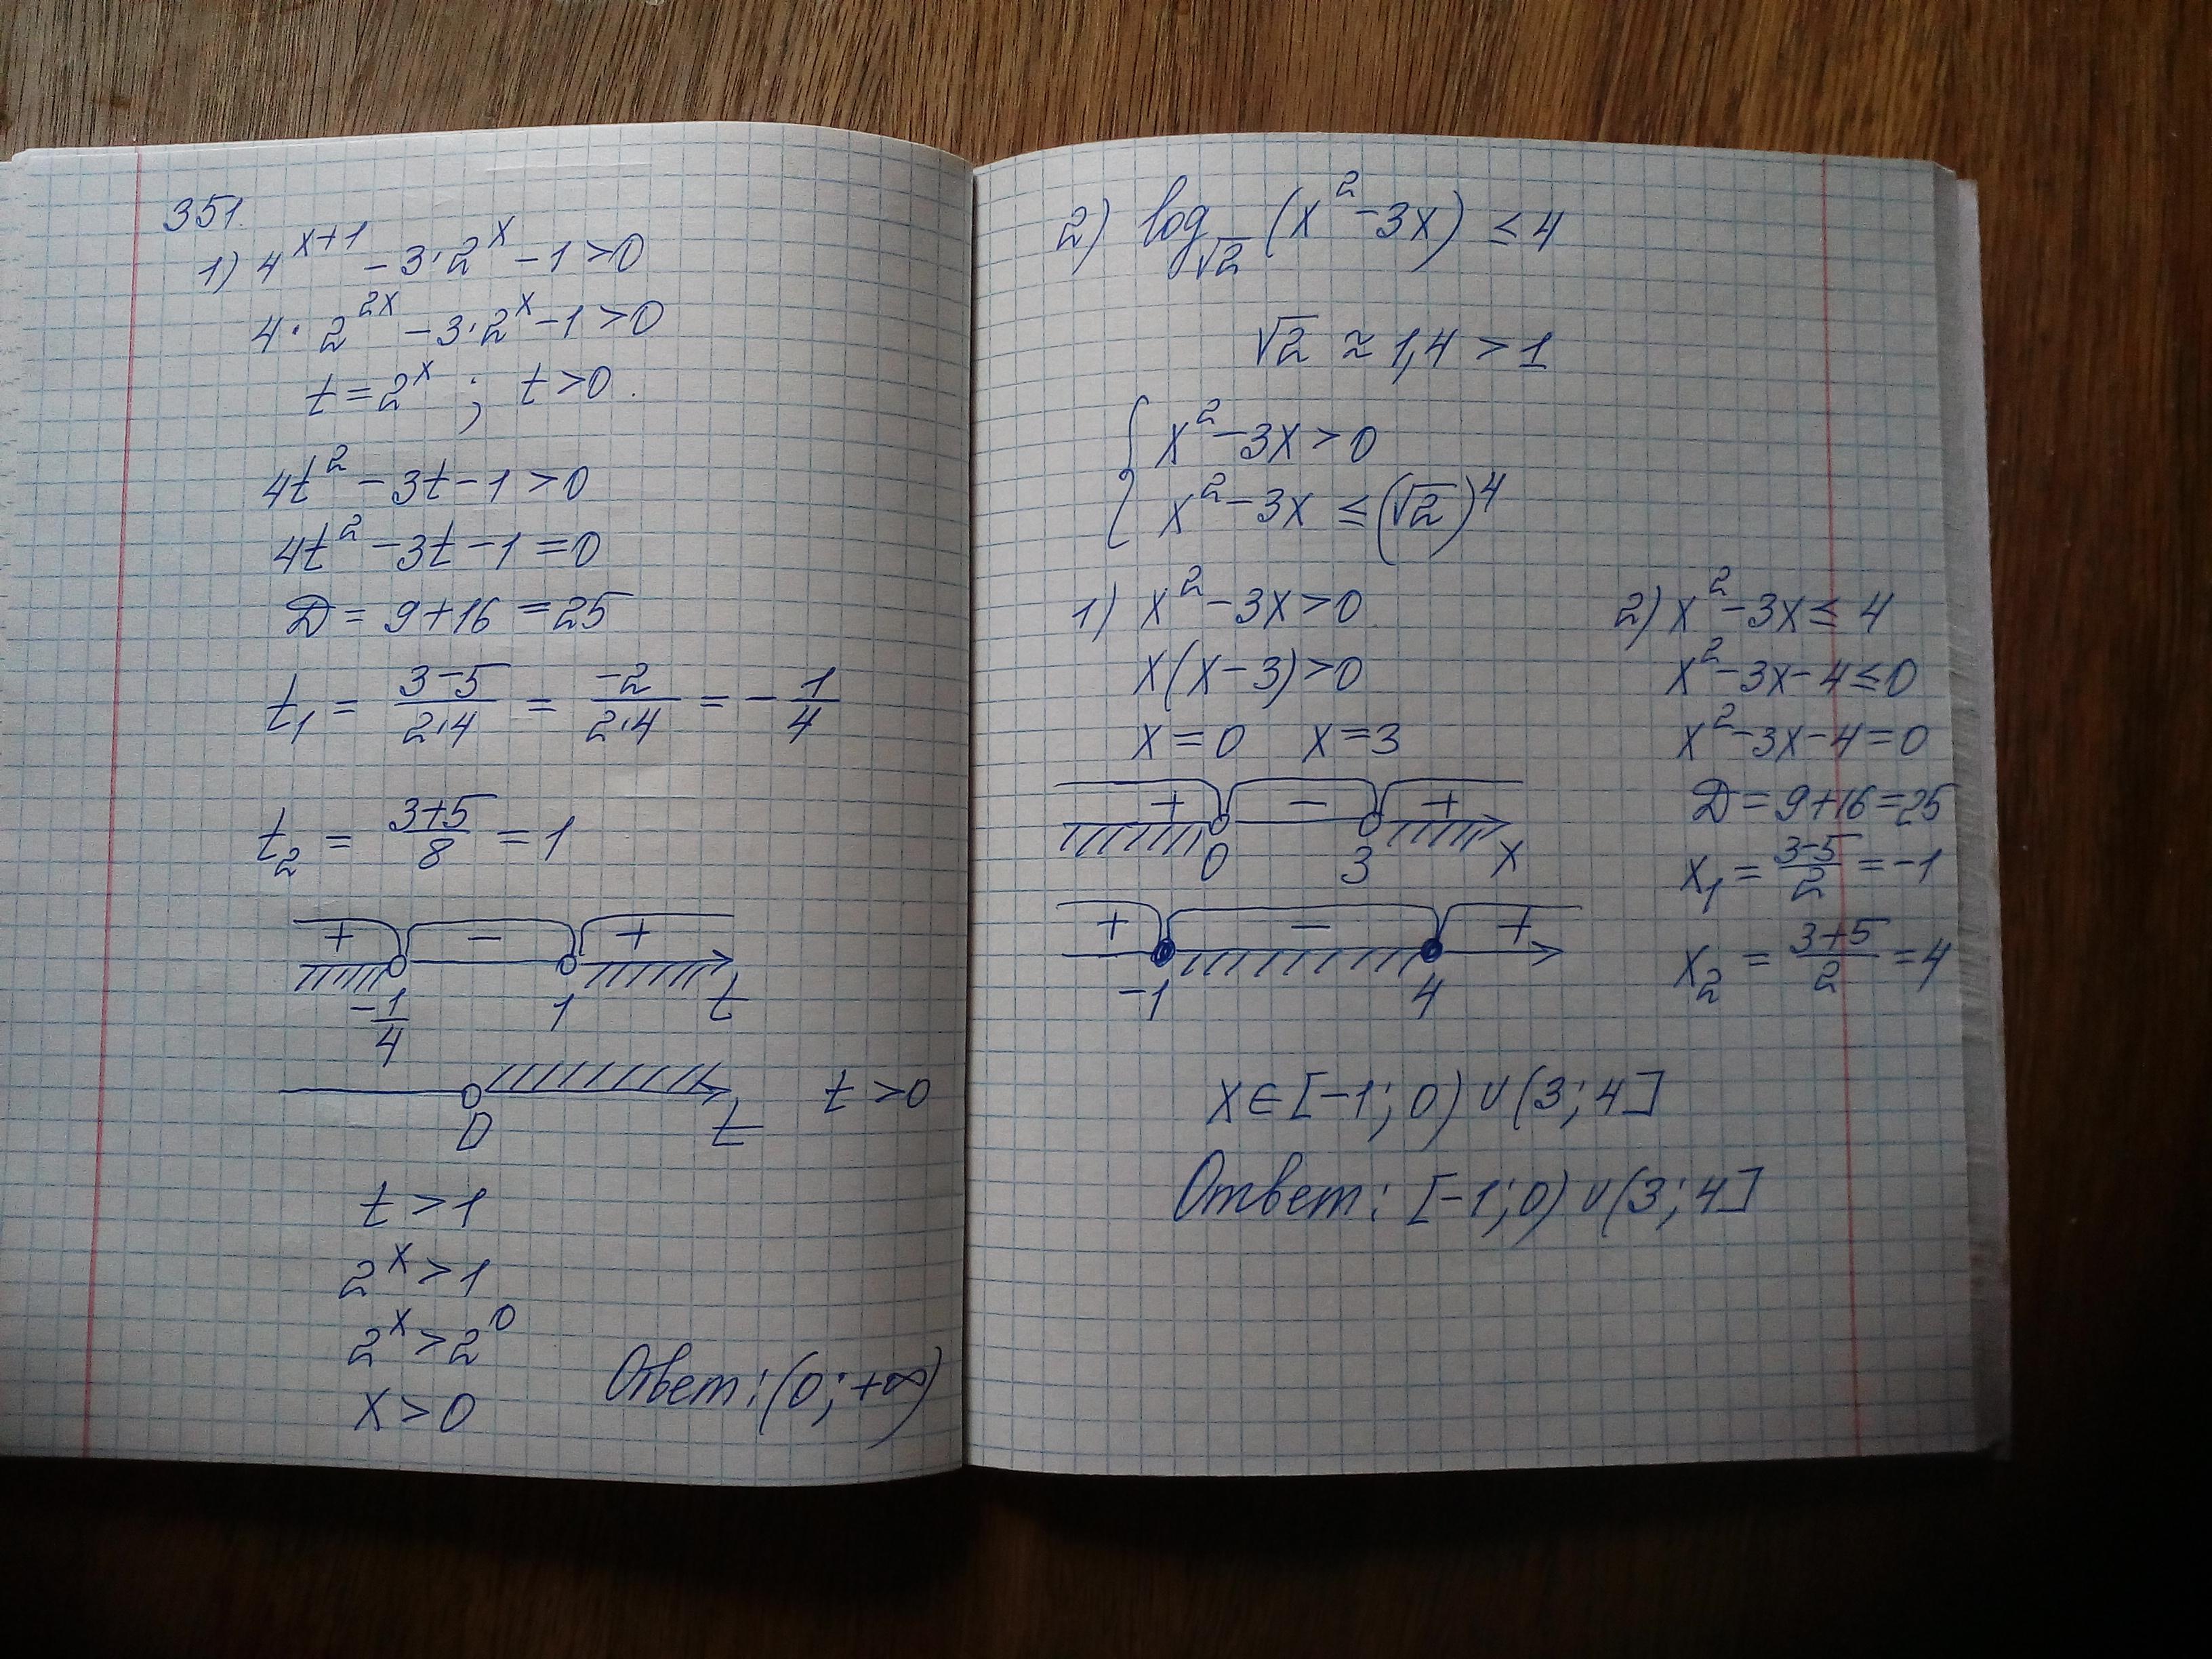 351.
1) 4^(x+1) - 3·2^x - 1 > 0
4·2^(2x) - 3·2^x - 1 > 0
t = 2^x ; t > 0.
4t² - 3t - 1 > 0
4t² - 3t - 1 = 0
D = 9 + 16 = 25
t₁ = (3-5)/(2·4) = -2/(2·4) = -1/4
t₂ = (3+5)/8 = 1
+ - +
-1/4 1 t
0 t t > 0
t > 1
2^x > 1
2^x > 2^0
x > 0
Ответ: (0; +∞)
2) log_√2 (x² - 3x) ≤ 4
√2 ≈ 1,4 > 1
{ x² - 3x > 0
x² - 3x ≤ (√2)⁴
1) x² - 3x > 0
x(x - 3) > 0
x = 0 x = 3
+ - +
0 3 x
+ - +
-1 4
2) x² - 3x ≤ 4
x² - 3x - 4 ≤ 0
x² - 3x - 4 = 0
D = 9 + 16 = 25
x₁ = (3-5)/2 = -1
x₂ = (3+5)/2 = 4
x ∈ [-1; 0) ∪ (3; 4]
Ответ: [-1; 0) ∪ (3; 4]